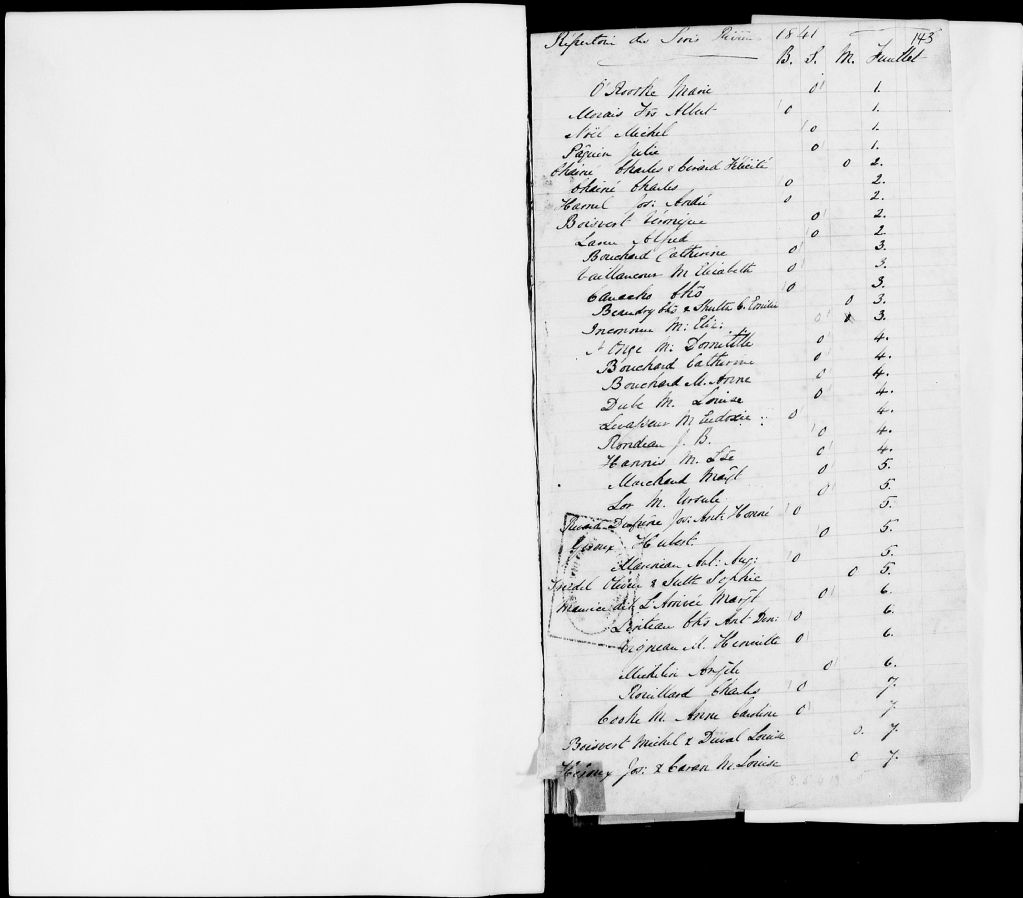 Répertoire des Trois Rivières 1841 143
B. S. M. Feuillet
O'Rooske Marie o 1.
Morais Frs Albert o 1.
Noël Michel o 1.
Paquin Julie o 1.
Chainé Charles & Girard Félicité o 2.
Chainé Charles o 2.
Hamel Jos: André o 2.
Boisvert Véronique o 2.
Alfred o 2.
Bouchard Catherine o 3.
Vaillancour M Elizabeth o 3.
Chs o 3.
Beaudry Chs & C. Emilie o 3.
Inconnue M: Eliz: o 3.
M: Domitille o 4.
Bouchard Catherine o 4.
Bouchard M. Anne o 4.
Dubé M. Louise o 4.
Levasseur M Eudoxie o 4.
Rondeau J. B. o 4.
Hannis M. Lse o 4.
Marchand Margt o 5.
Lor M. Ursule o 5.
Dufresne Jos: Ant: Honoré o 5.
Giroux Hubert o 5.
Ant: Aug: o 5.
Olivier & Sophie o 5.
Maurice dit L'Arrivée Margt o 6.
Chs Ant Den: o 6.
M. Henriette o 6.
Angèle o 6.
Rouillard Charles o 7.
Cooke M. Anne Caroline o 7.
Boisvert Michel & Duval Louise o. 7.
Héroux Jos: & Caron M. Louise o 7.